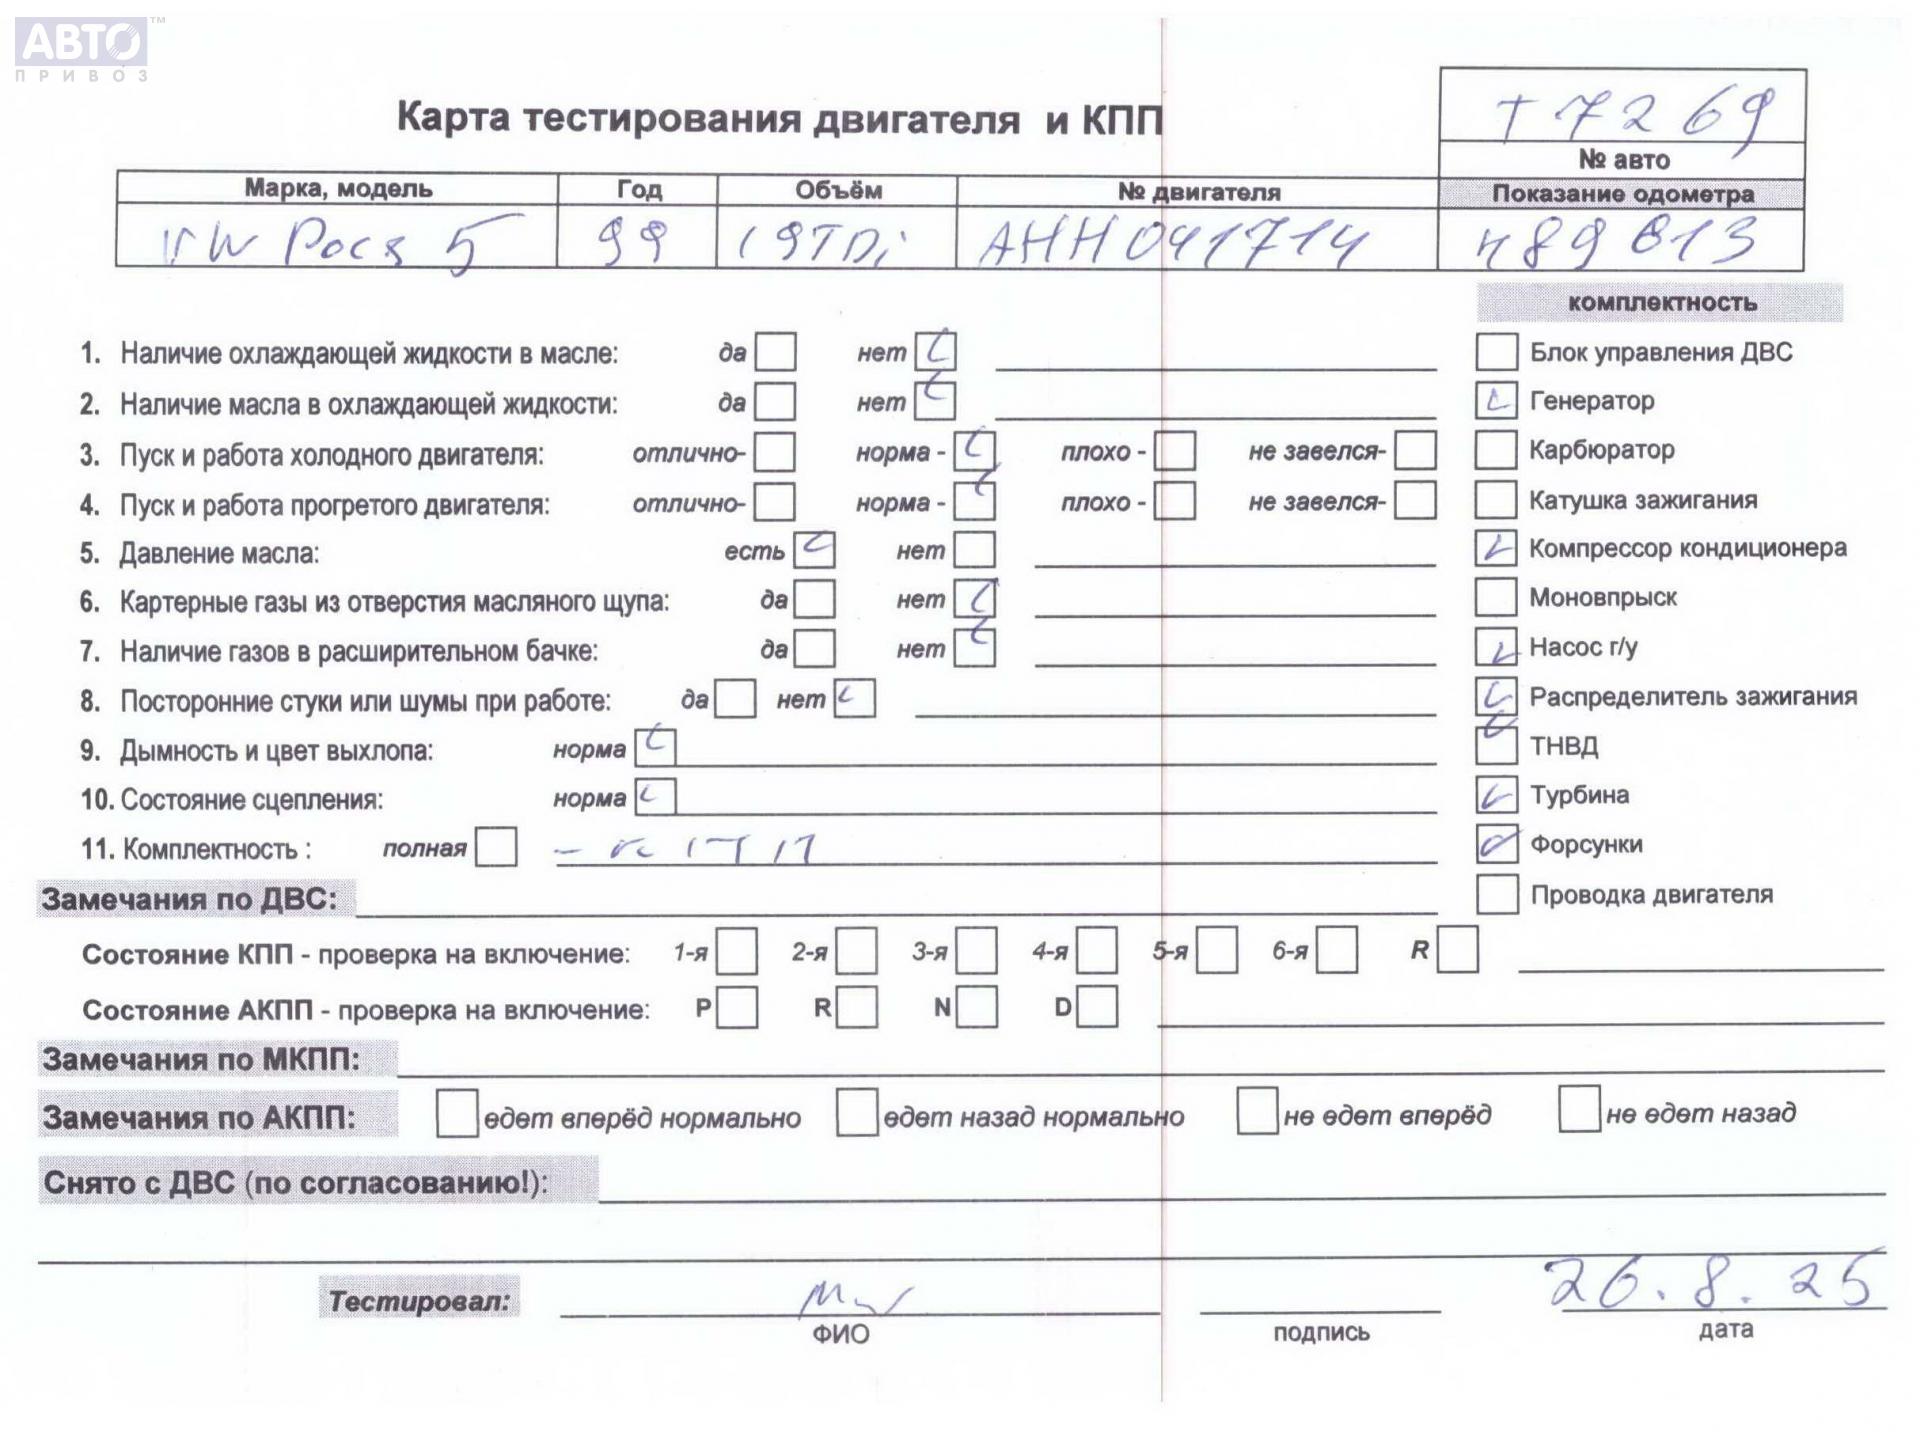 АВТО™
ПРИВОЗ
Карта тестирования двигателя и КПП
Т 7269
№ авто
Марка, модель Год Объём № двигателя Показание одометра
VW 5 99 1 9TDi AHH041714 489 613
комплектность
1. Наличие охлаждающей жидкости в масле: да нет Блок управления ДВС
2. Наличие масла в охлаждающей жидкости: да нет Генератор
3. Пуск и работа холодного двигателя: отлично- норма - плохо - не завелся- Карбюратор
4. Пуск и работа прогретого двигателя: отлично- норма - плохо - не завелся- Катушка зажигания
5. Давление масла: есть нет Компрессор кондиционера
6. Картерные газы из отверстия масляного щупа: да нет Моновпрыск
7. Наличие газов в расширительном бачке: да нет Насос г/у
8. Посторонние стуки или шумы при работе: да нет Распределитель зажигания
9. Дымность и цвет выхлопа: норма ТНВД
10. Состояние сцепления: норма Турбина
11. Комплектность : полная Форсунки
Замечания по ДВС: Проводка двигателя
Состояние КПП - проверка на включение: 1-я 2-я 3-я 4-я 5-я 6-я R
Состояние АКПП - проверка на включение: P R N D
Замечания по МКПП:
Замечания по АКПП: едет вперёд нормально едет назад нормально не едет вперёд не едет назад
Снято с ДВС (по согласованию!):
Тестировал: 26.8.25
ФИО подпись дата